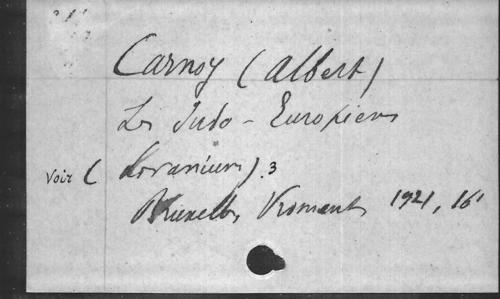 Carnoy (Albert)
Les Indo-Européens
Voir (Lovanium). 3
Bruxelles, Vromant, 1921, 16°